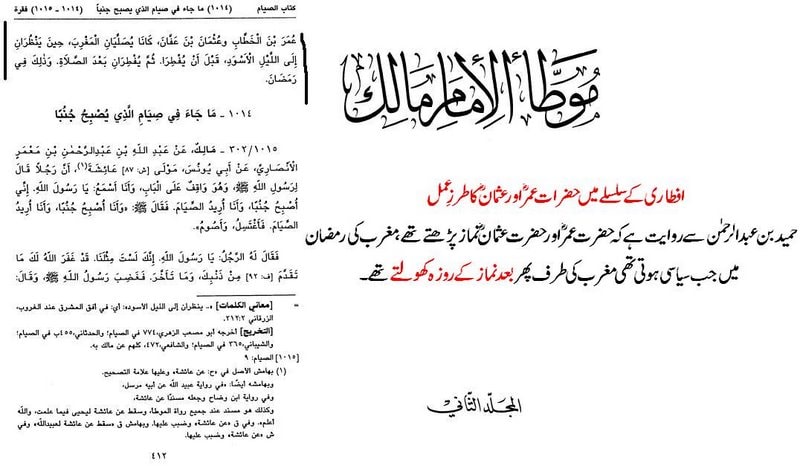 كتاب الصيام (١٠١٤) ما جاء في صيام الذي يصبح جنباً (١٠١٤ - ١٠١٥) فقرة
عُمَرَ بْنَ الْخَطَّابِ وَعُثْمَانَ بْنَ عَفَّانَ، كَانَا يُصَلِّيَانِ الْمَغْرِبَ، حِينَ يَنْظُرَانِ
إِلَى اللَّيْلِ الْأَسْوَدِ، قَبْلَ أَنْ يُفْطِرَا. ثُمَّ يُفْطِرَانِ بَعْدَ الصَّلَاةِ. وَذٰلِكَ فِي
رَمَضَانَ.
١٠١٤ - مَا جَاءَ فِي صِيَامِ الَّذِي يُصْبِحُ جُنُبًا
٣٠٢/١٠١٥ - مَالِكٌ، عَنْ عَبْدِ اللهِ بْنِ عَبْدِالرَّحْمٰنِ بْنِ مَعْمَرٍ
الْأَنْصَارِيِّ، عَنْ أَبِي يُونُسَ، مَوْلَى [ش: ٨٧] عَائِشَةَ(١)، أَنَّ رَجُلًا قَالَ
لِرَسُولِ اللهِ ﷺ، وَهُوَ وَاقِفٌ عَلَى الْبَابِ، وَأَنَا أَسْمَعُ: يَا رَسُولَ اللهِ. إِنِّي
أُصْبِحُ جُنُبًا، وَأَنَا أُرِيدُ الصِّيَامَ. فَقَالَ ﷺ: «وَأَنَا أُصْبِحُ جُنُبًا، وَأَنَا أُرِيدُ
الصِّيَامَ. فَأَغْتَسِلُ، وَأَصُومُ».
فَقَالَ لَهُ الرَّجُلُ: يَا رَسُولَ اللهِ. إِنَّكَ لَسْتَ مِثْلَنَا. قَدْ غَفَرَ اللهُ لَكَ مَا
تَقَدَّمَ [ف: ٩٢] مِنْ ذَنْبِكَ، وَمَا تَأَخَّرَ. فَغَضِبَ رَسُولُ اللهِ ﷺ، وَقَالَ:
= [معاني الكلمات] «.. ينظران إلى الليل الأسود» أي: في أفق المشرق عند الغروب،
الزرقاني ٣١٢:٢
[التخريج] أخرجه أبو مصعب الزهري، ٧٧٤ في الصيام؛ والحدثاني، ٤٥٥ب في الصيام؛
والشيباني، ٣٦٥ في الصيام؛ والشافعي، ٤٧٢، كلهم عن مالك به.
[١٠١٥] الصيام: ٩
(١) بهامش الأصل في «ح: عن عائشة»، وعليها علامة التصحيح.
وبهامشه أيضًا: «في رواية عبيد الله عن أبيه مرسل،
وفي رواية ابن وضاح وجعله مسندًا عن عائشة،
وكذلك هو مسند عند جميع رواة الموطأ، وسقط عن عائشة ليحيى فيما علمت، والله
أعلم». وفي ق «عن عائشة» وضبب عليها. وبهامش ق «سقط عن عائشة لعبيدالله» وفي
ش «عن عائشة»، وضبب عليها.
٤١٢
موطأ الإمام مالك
افطاری کے سلسلے میں حضرات عمرؓ اور عثمانؓ کا طرز عمل
حمید بن عبدالرحمٰن سے روایت ہے کہ حضرت عمرؓ اور حضرت عثمانؓ نماز پڑھتے تھے مغرب کی رمضان
میں جب سیاسی ہوتی تھی مغرب کی طرف پھر بعد نماز کے روزہ کھولتے تھے۔
المجلد الثاني